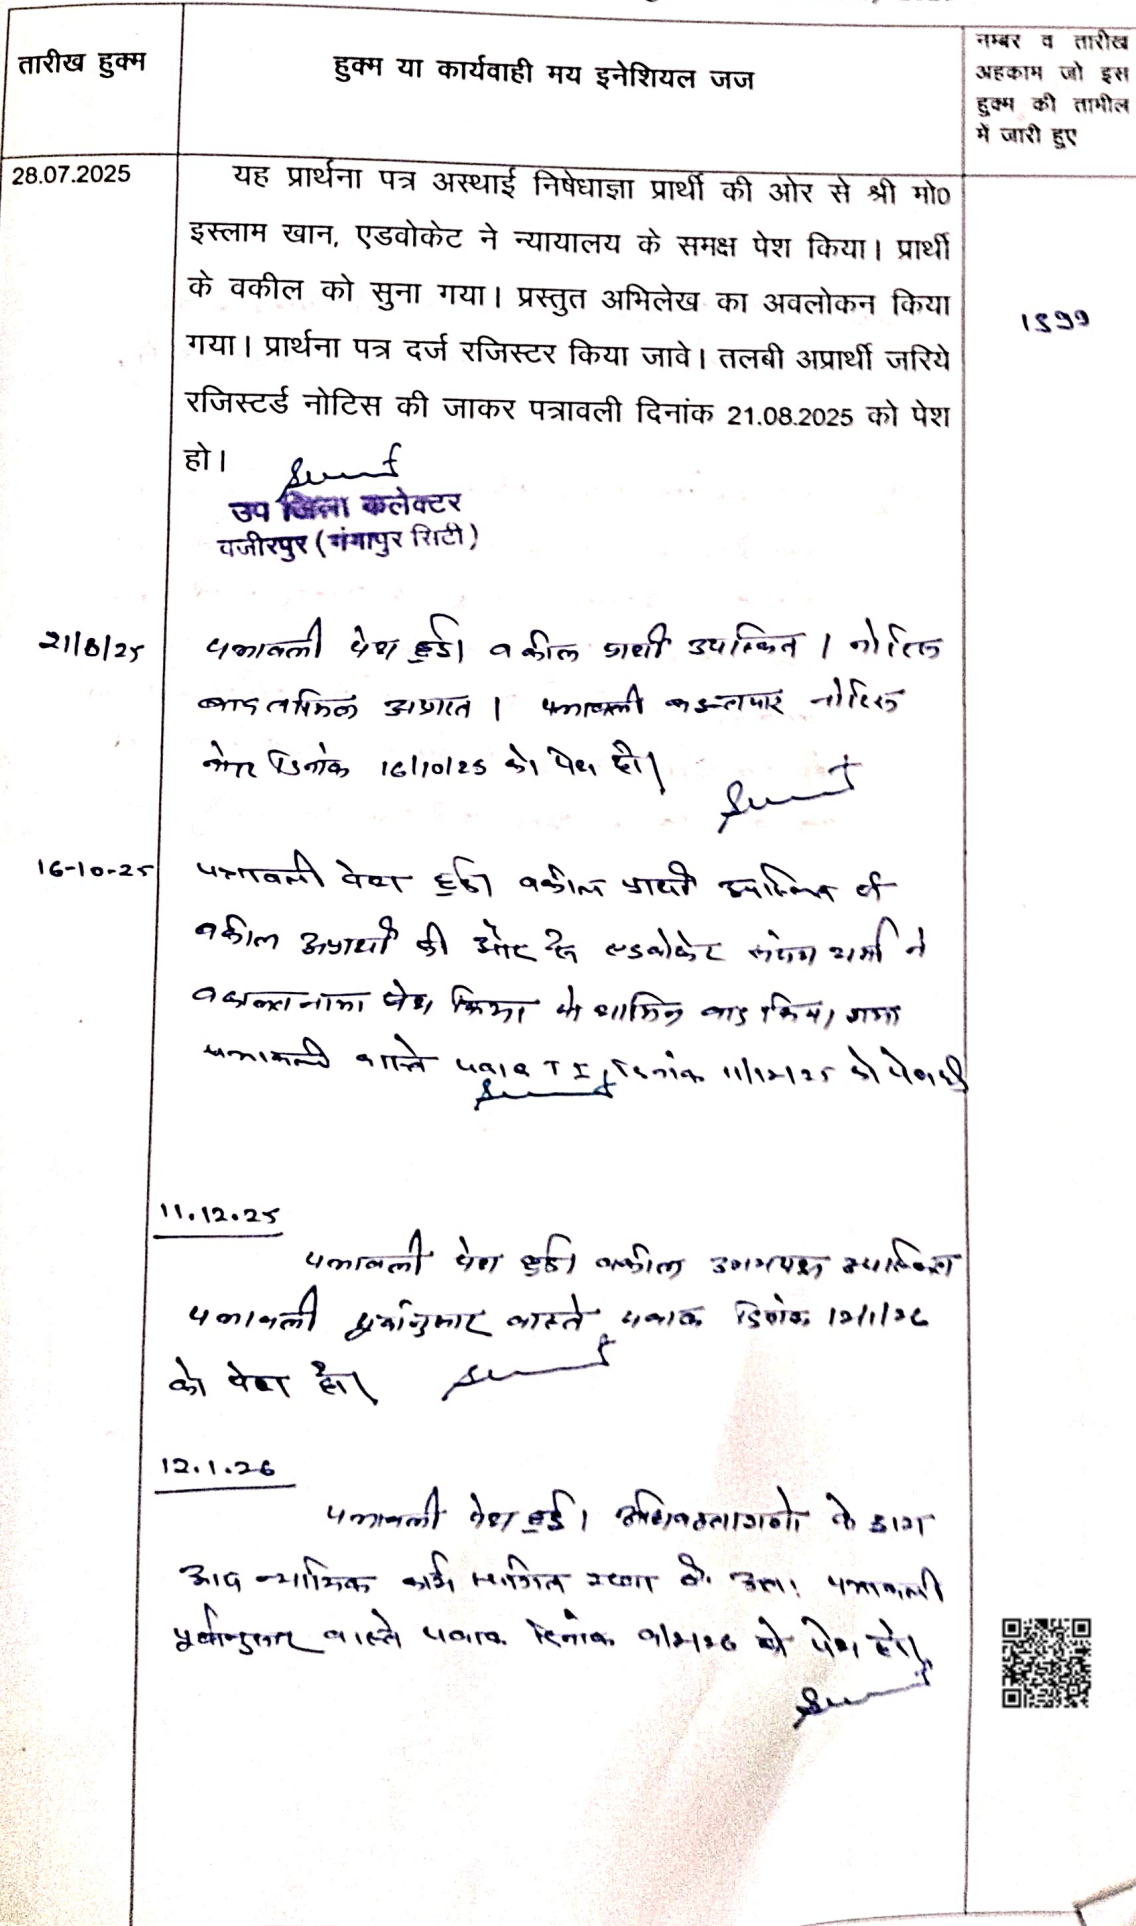 तारीख हुक्म
हुक्म या कार्यवाही मय इनेशियल जज
नम्बर व तारीख
अहकाम जो इस
हुक्म की तामील
में जारी हुए
28.07.2025
यह प्रार्थना पत्र अस्थाई निषेधाज्ञा प्रार्थी की ओर से श्री मो0
इस्लाम खान, एडवोकेट ने न्यायालय के समक्ष पेश किया। प्रार्थी
के वकील को सुना गया। प्रस्तुत अभिलेख का अवलोकन किया
गया। प्रार्थना पत्र दर्ज रजिस्टर किया जावे। तलबी अप्रार्थी जरिये
रजिस्टर्ड नोटिस की जाकर पत्रावली दिनांक 21.08.2025 को पेश
हो।
1599
उप जिला कलेक्टर
वजीरपुर (गंगापुर सिटी)
21/8/25
पत्रावली पेश हुई। वकील प्रार्थी उपस्थित। नोटिस
अप्राप्त। पत्रावली नोटिस
दिनांक 16/10/25 को पेश हो।
16-10-25
पत्रावली पेश हुई। वकील प्रार्थी उपस्थित
वकील अप्रार्थी की ओर से एडवोकेट शर्मा ने
वकालतनामा पेश किया शामिल किया गया
पत्रावली वास्ते जवाब T I दिनांक 11/12/25 को पेश हो
11.12.25
पत्रावली पेश हुई। वकील उभयपक्ष उपस्थित
पत्रावली पूर्वानुसार वास्ते जवाब दिनांक 12/1/26
को पेश हो।
12.1.26
पत्रावली पेश हुई। अभिभाषकगणों के द्वारा
आज न्यायिक कार्य स्थगित पत्रावली
पूर्वानुसार वास्ते जवाब दिनांक को पेश हो।